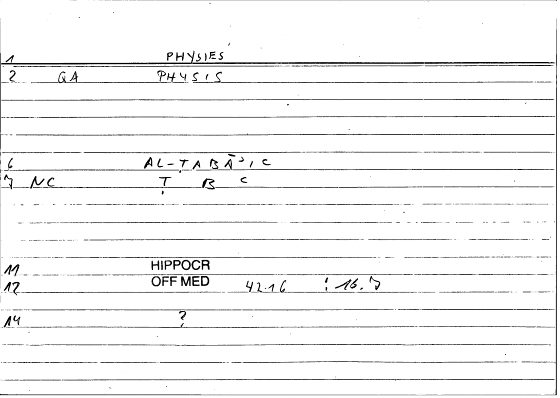 1 PHYSIES
2 QA PHYSIS
6 AL-ṬABĀʾIʿ C
7 NC Ṭ B C
11 HIPPOCR
12 OFF MED 42.16 : 16.7
14 ?